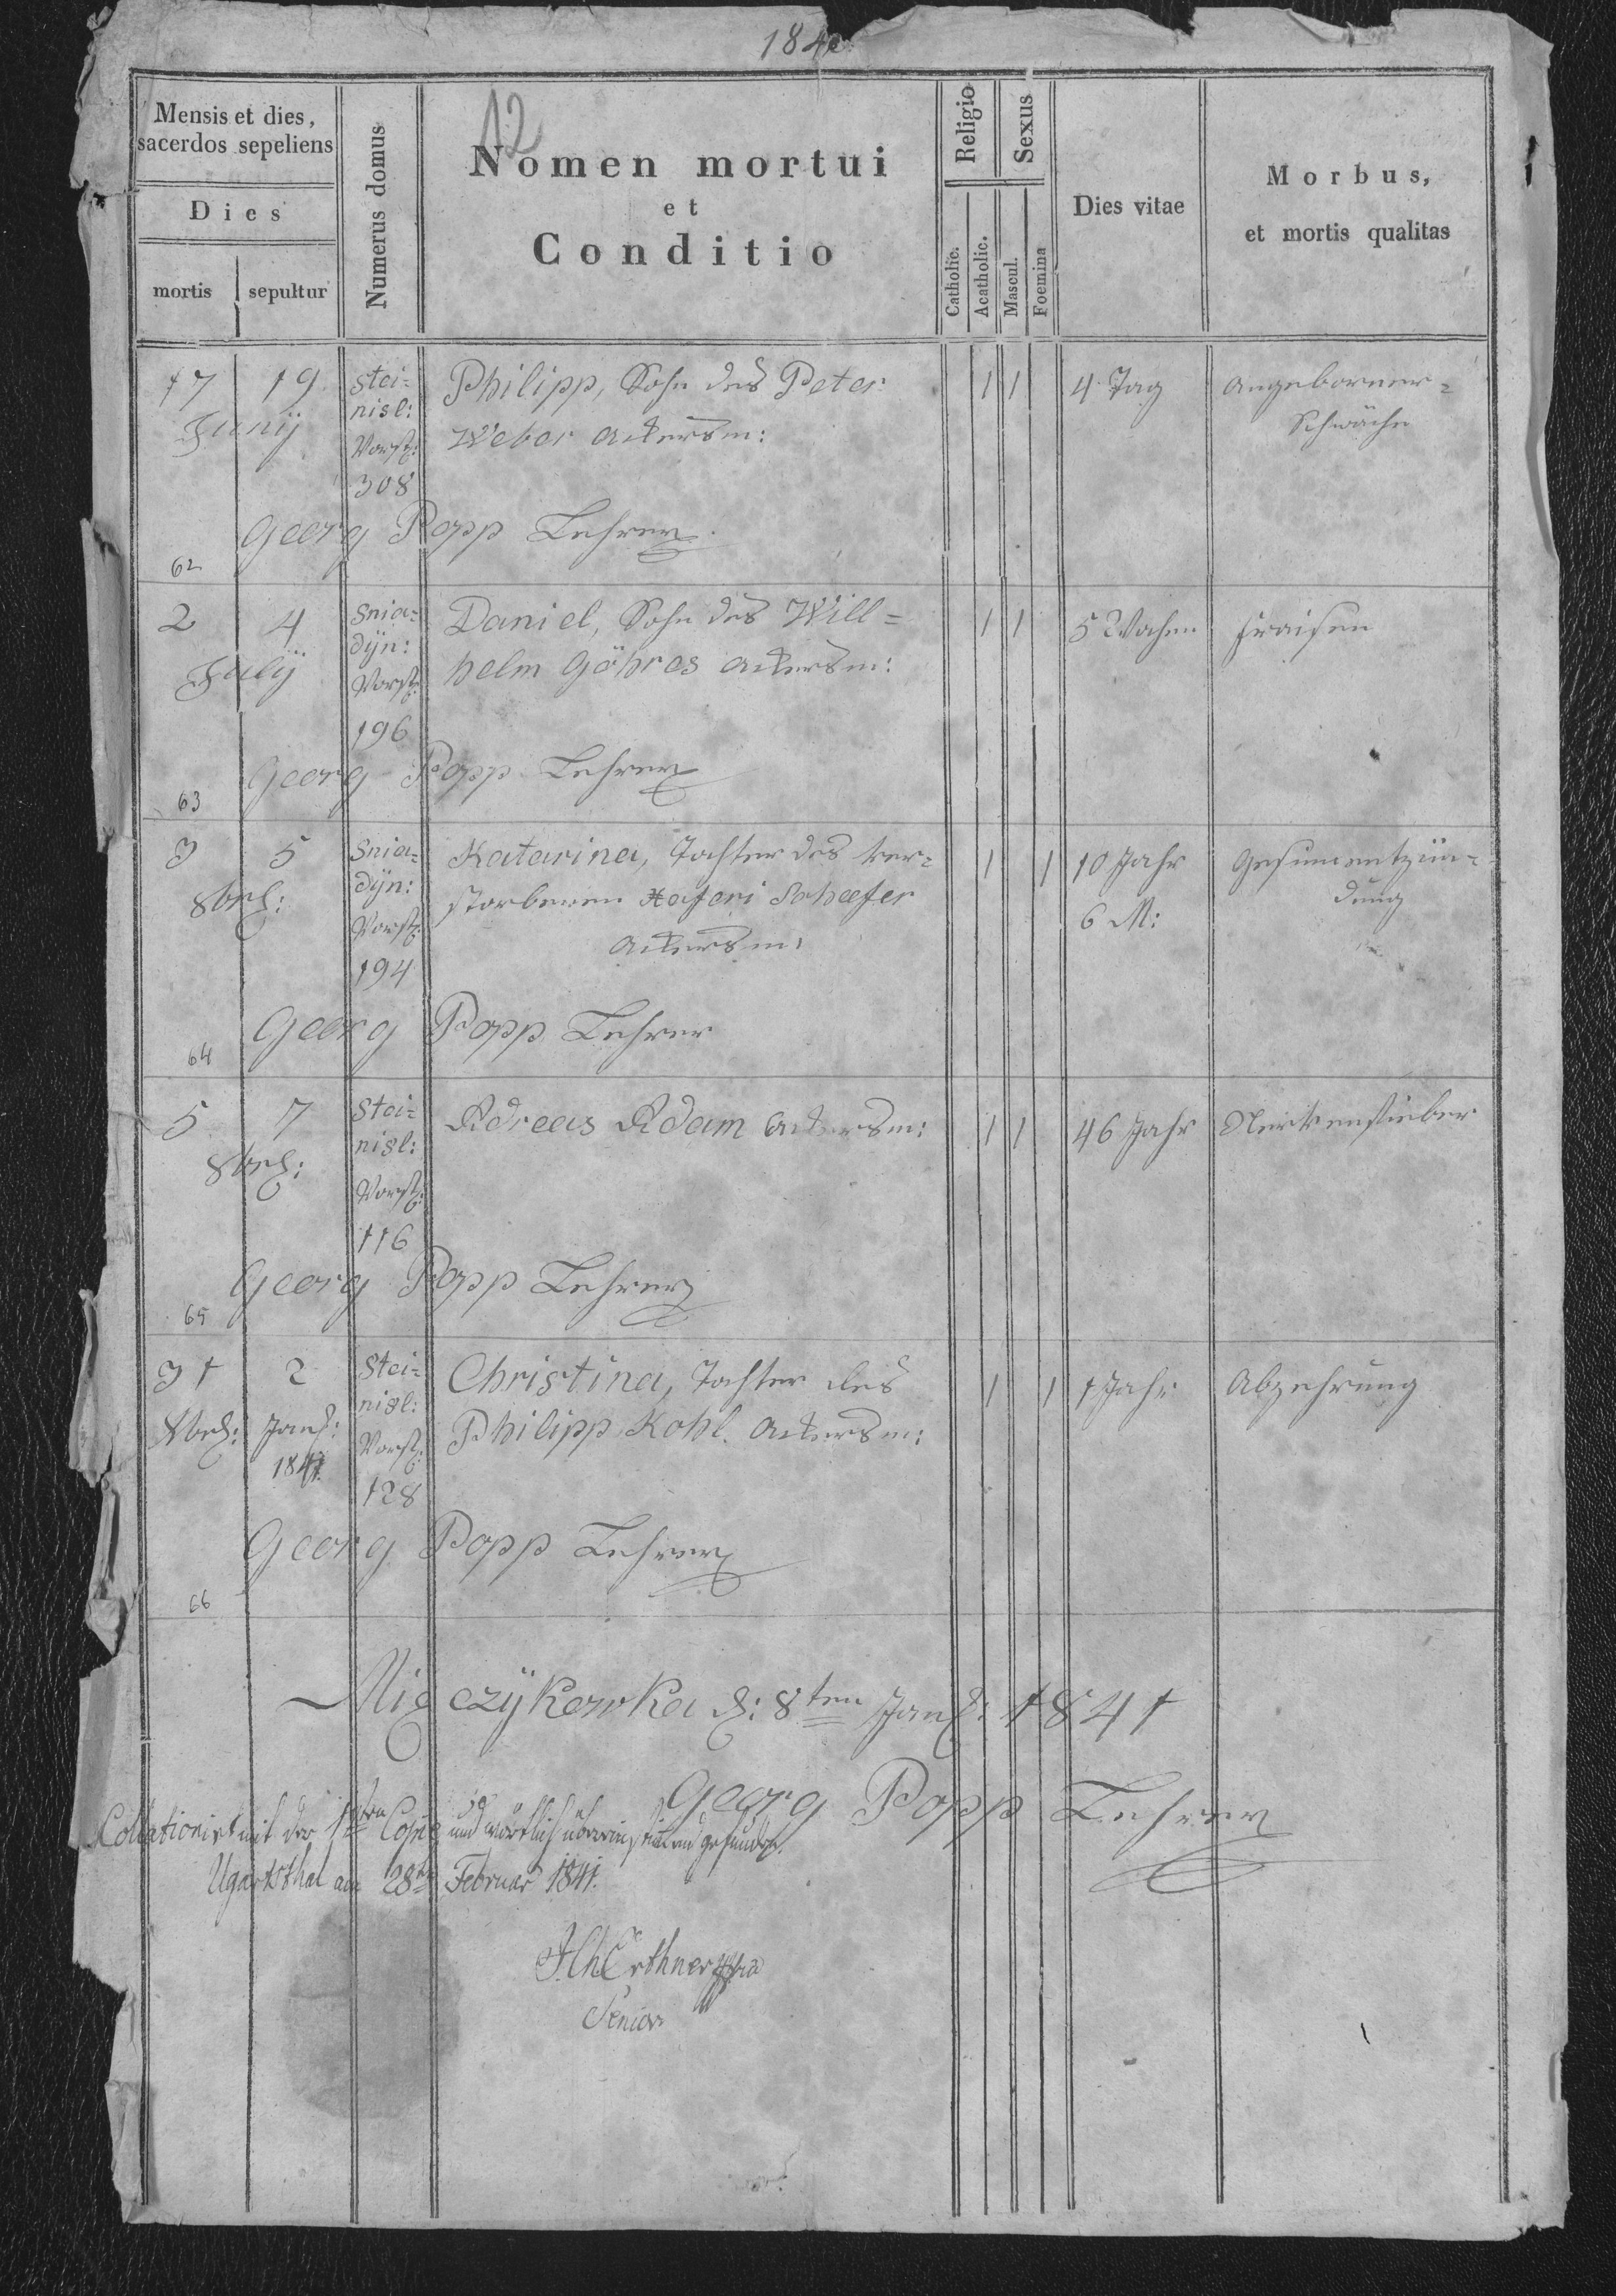 1840.
12
Mensis et dies,
sacerdos sepeliens
Dies
mortis
sepultur
Numerus domus
Nomen mortui
et
Conditio
Religio
Catholic.
Acatholic.
Sexus
Mascul.
Foemina
Dies vitae
Morbus,
et mortis qualitas
17 19 Stei= Philipp, Sohn des Peter 1 1 4 Tag Angeborner=
Junÿ nisl: Weber Akersm: Schwäche
Vorst:
308
Georg Popp Lehrer
62
2 4 Snia= Daniel, Sohn des Will= 1 1 5 Wochen Fraisen
Julÿ dÿn: helm Göhres Akersm:
Vorst:
196
Georg Popp Lehrer
63
3 5 Snia= Katarina, Tochter des ver= 1 1 10 Jahr
8br: dÿn: storbenen Schaefer 6 M: dung
Vorst: Akersm:
194
Georg Popp Lehrer
64
5 7 Stei= Adreas Adam Akersm: 1 1 46 Jahr Nervenfieber
8br: nisl:
Vorst:
116
Georg Popp Lehrer
65
31 2 Stei= Christina, Tochter des 1 1 1 Jahr Abzehrung
Xbr: Jan: nisl: Philipp Kohl Akersm:
1841. Vorst:
128
Georg Popp Lehrer
66
Migczÿkowka d: 8ten Jan: 1841
Georg Popp Lehrer
Collationirt mit der 1ten Copie und wörtlich übereinstimmend gefunden.
Ugartsthal am 28ten Februar 1841.
Senior